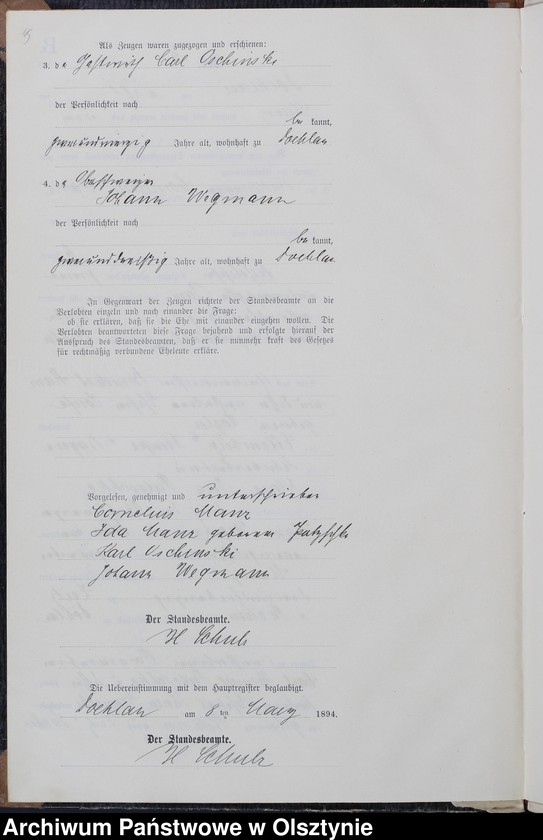 Als Zeugen waren zugezogen und erschienen:
3. der Gastwirth Carl Oschinski
der Persönlichkeit nach
be kannt,
zweiundvierzig Jahre alt, wohnhaft zu Doehlau
4. der Oberschweizer
Johann Wegmann
der Persönlichkeit nach
be kannt,
zweiunddreißig Jahre alt, wohnhaft zu Doehlau
In Gegenwart der Zeugen richtete der Standesbeamte an die
Verlobten einzeln und nach einander die Frage:
ob sie erklären, daß sie die Ehe mit einander eingehen wollen. Die
Verlobten beantworteten diese Frage bejahend und erfolgte hierauf der
Ausspruch des Standesbeamten, daß er sie nunmehr kraft des Gesetzes
für rechtmäßig verbundene Eheleute erkläre.
Vorgelesen, genehmigt und unterschrieben
Cornelius Manz
Ida Manz geborene
Karl Oschinski
Johann Wegmann
Der Standesbeamte.
H Schulz
Die Uebereinstimmung mit dem Hauptregister beglaubigt.
Doehlau am 8 ten März 1894.
Der Standesbeamte.
H Schulz
Archiwum Państwowe w Olsztynie